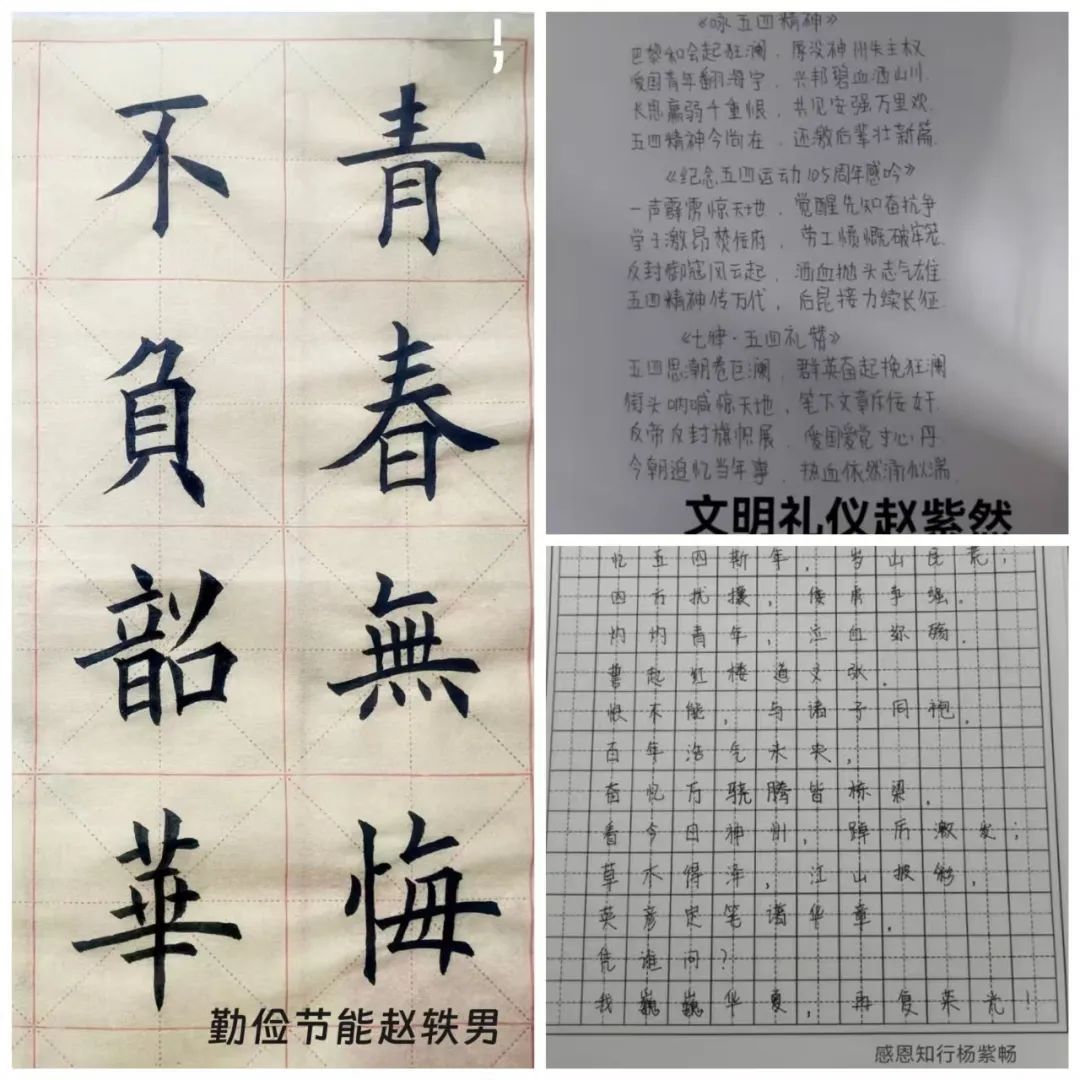 青春無悔
不負韶華
勤俭节能赵轶男
《咏五四精神》
巴黎和会起狂澜，辱没神州失主权
爱国青年翻海宇，兴邦碧血洒山川.
长思羸弱千重恨，共见安强万里欢.
五四精神今尚在，还激后辈壮新篇.
《纪念五四运动105周年感吟》
一声霹雳惊天地，觉醒先知奋抗争
学子激昂焚佞府，劳工愤慨破牢笼.
反封御寇风云起，洒血抛头志气雄
五四精神传万代，后昆接力续长征.
《七律·五四礼赞》
五四思潮卷巨澜，群英奋起挽狂澜.
街头呐喊惊天地，笔下文章斥佞奸.
反帝反封旗帜展，爱国爱党寸心丹
今朝追忆当年事，热血依然涌似湍.
文明礼仪赵紫然
忆五四斯年，岁山民荒；
四方扰攘，倭虏争强.
灼灼青年，泣血殇.
曹起红楼道义张.
恨不能，与诸子同袍.
百年浩气未央，
奋忆万骁腾皆栋梁.
看今日神州，踔厉激发；
草木得泽，江山披彩.
英彦定笔谱华章.
凭谁问？
我巍巍华夏，再复荣光！
感恩知行杨紫畅